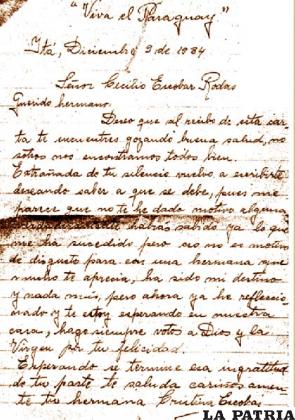 "Viva el Paraguay."
Itá, Diciembre 9 de 1934
Señor Cecilio Escobar Rodas
Querido hermano:
Deseo que al recibo de esta car-
ta te encuentres gozando buena salud, no-
sotros nos encontramos todos bien.
Extrañada de tu silencio vuelvo a escribirte
deseando saber a que se debe, pues me
parece que no te he dado motivo alguno
habrás sabido ya lo que
me ha sucedido pero eso no es motivo
de disgusto para con una hermana que
mucho te aprecia, ha sido mi destino
y nada más, pero ahora ya he reflecio-
nado y te estoy esperando en nuestra
casa, hago siempre votos a Dios y la
Virgen por tu felicidad.
Esperando se termine esa ingratitud
de tu parte te saluda cariñosamen-
te tu hermana Cristina Escobar
LA PATRIA